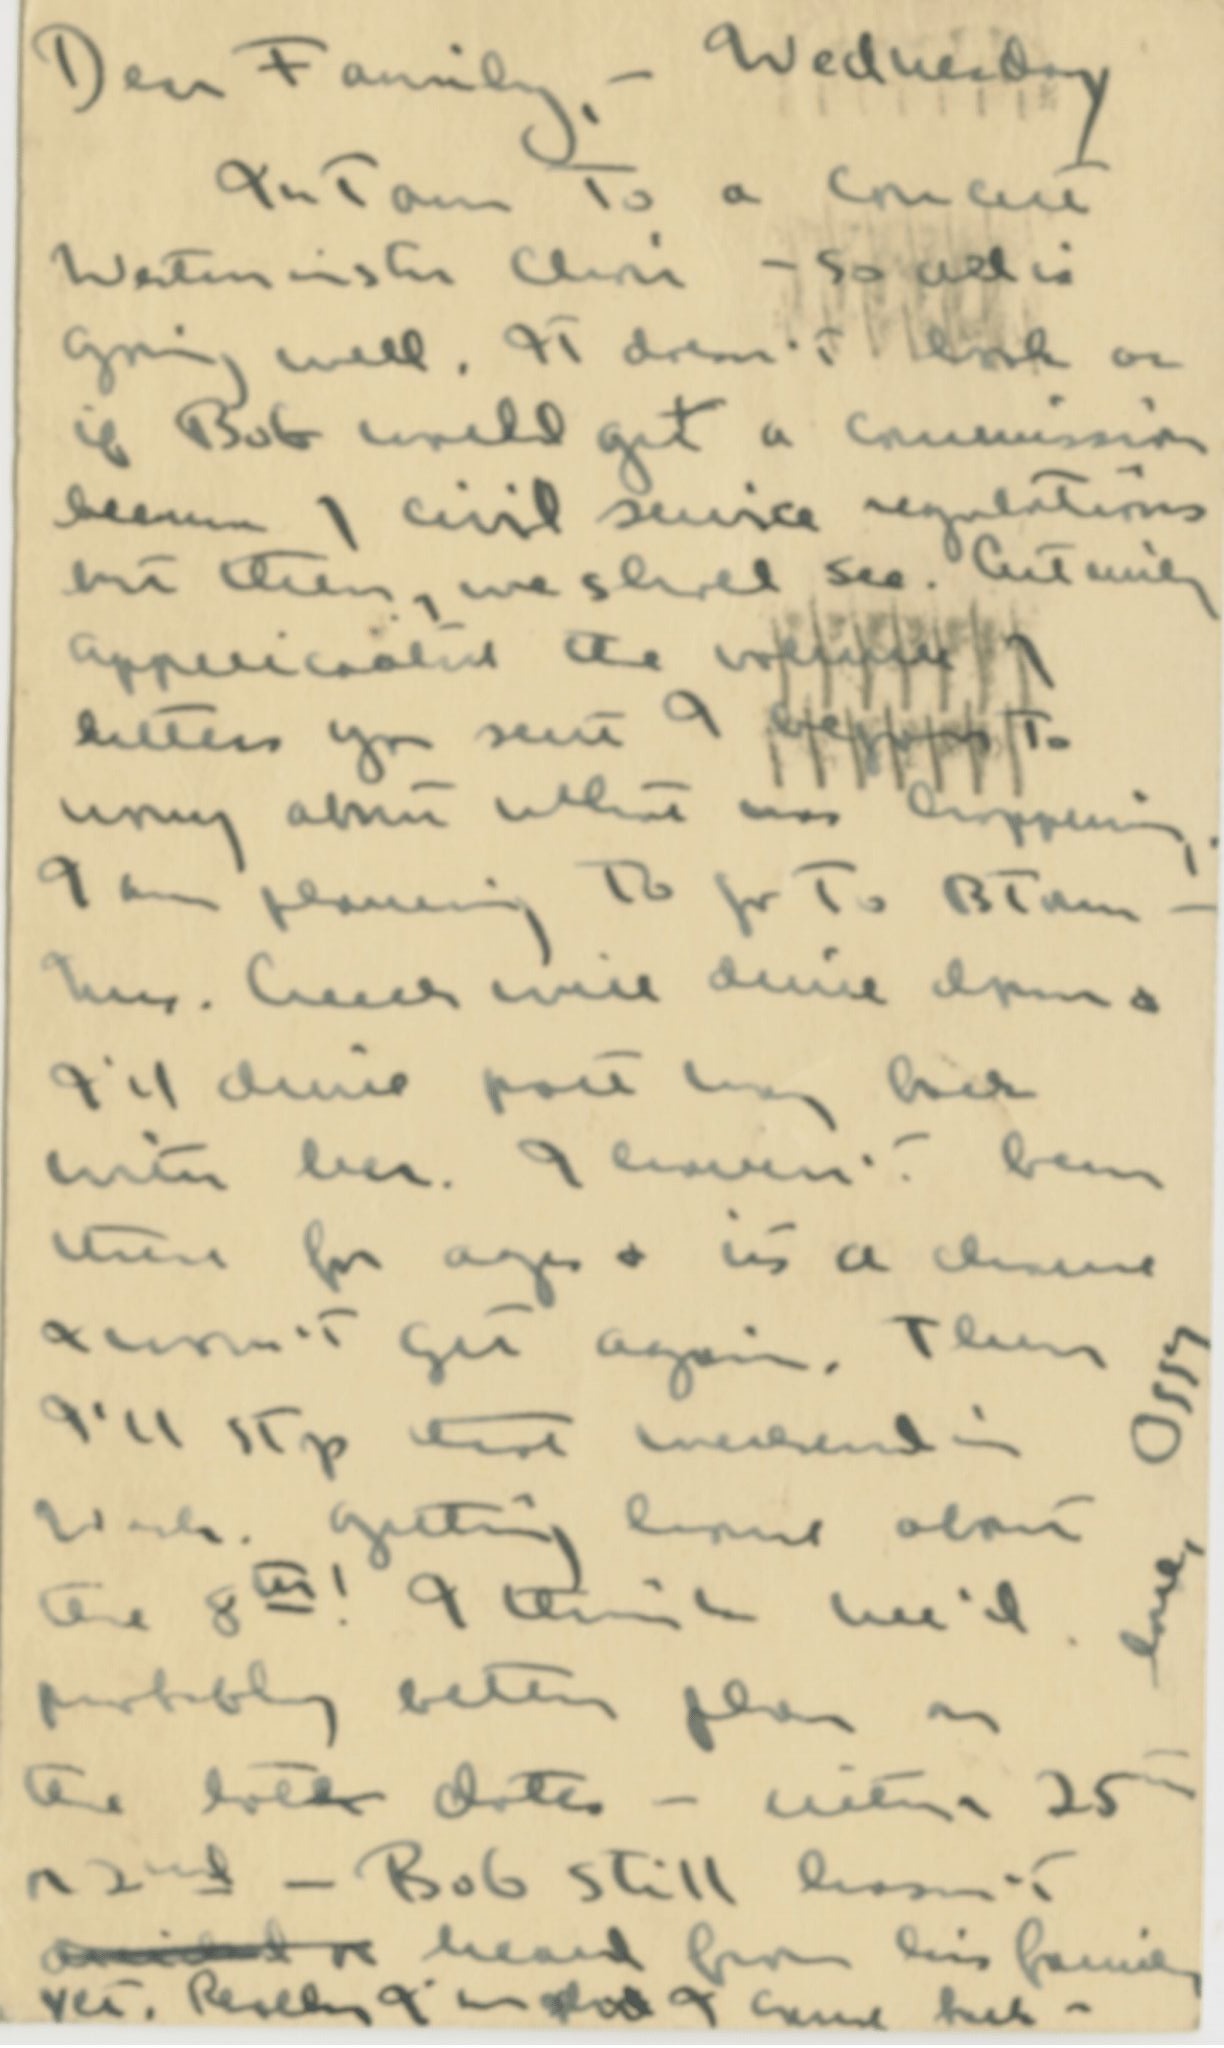 Dear Family, - Wednesday
In Town To a concert
Westminster Choir - so all is
going well. It doesn't look as
if Bob would get a commission
because of civil service regulations
but then, we shall see. Certainly
appreciated the volume of
letters you sent I began to
worry about what was happening.
I am planning To go To BTown -
Mrs. will drive down &
I'll drive part way back
with her. I haven't been
there for ages & it's a chance
I won't get again. Then
I'll stop that weekend in
Wash. getting home about
the 8th! I think we'd
probably better plan on
the latter dates - either 25th
or 2nd - Bob still hasn't
heard from his family
yet. Really I'm glad I came back -
love, Ossy